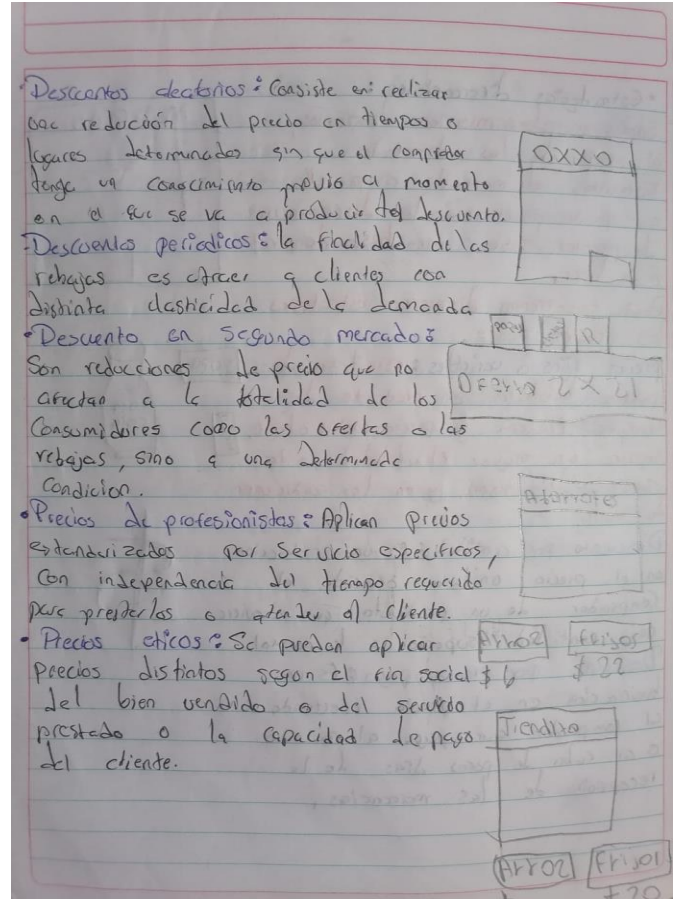 •Descuentos aleatorios: Consiste en: realizar
una reducción del precio en tiempos o
lugares determinados sin que el comprador
tenga un conocimiento previo al momento
en el que se va a producir tel descuento.
OXXO
•Descuentos periodicos: la finalidad de las
rebajas es atraer a clientes con
distinta elasticidad de la demanda
•Descuento en segundo mercado:
Son reducciones de precio que no
afectan a la totalidad de los
Consumidores como las ofertas o las
rebajas, sino a una determinada
Condicion.
R
Oferta 2 x 21
•Precios de profesionistas: Aplican precios
estandarizados por servicio especificos,
Con independencia del tiempo requerido
para prestarlos o atender al cliente.
Abarrotes
•Precios eticos: Se puedan aplicar
precios distintos segun el fin social
del bien vendido o del servicio
prestado o la capacidad de pago
del cliente.
Arroz Frijol
$ 6 $ 22
Tiendita
Arroz Frijol
$20